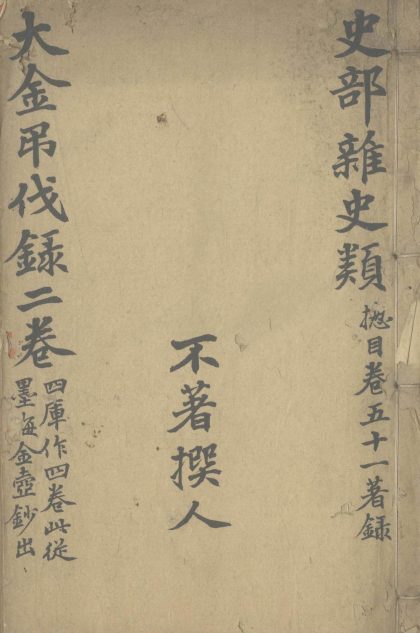 史部雜史類
揔目卷五十一著録
不著撰人
大金弔伐録二卷
四庫作四卷此從
墨海金壺鈔出